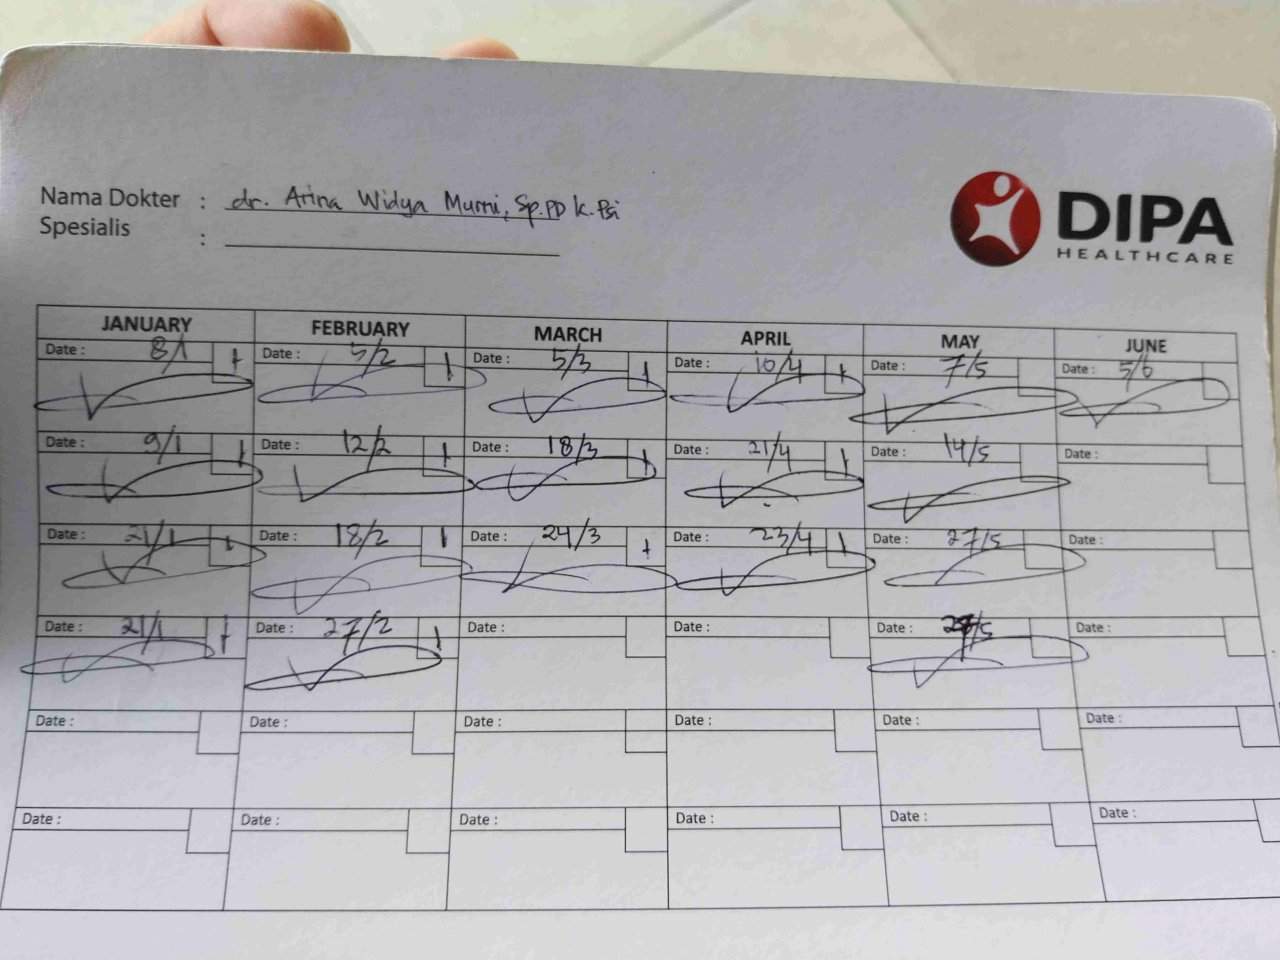 Nama Dokter : dr. Arina Widya Murni, Sp.PD K.Psi
Spesialis :
DIPA
HEALTHCARE
JANUARY FEBRUARY MARCH APRIL MAY JUNE
Date : 8/1 1 Date : 5/2 1 Date : 5/3 1 Date : 10/4 1 Date : 7/5 Date : 5/6
Date : 9/1 1 Date : 12/2 1 Date : 18/3 1 Date : 21/4 1 Date : 14/5 Date :
Date : 21/1 1 Date : 18/2 1 Date : 24/3 1 Date : 23/4 1 Date : 27/5 Date :
Date : 21/1 1 Date : 27/2 1 Date : Date : Date : Date :
Date : Date : Date : Date : Date : Date :
Date : Date : Date : Date : Date : Date :